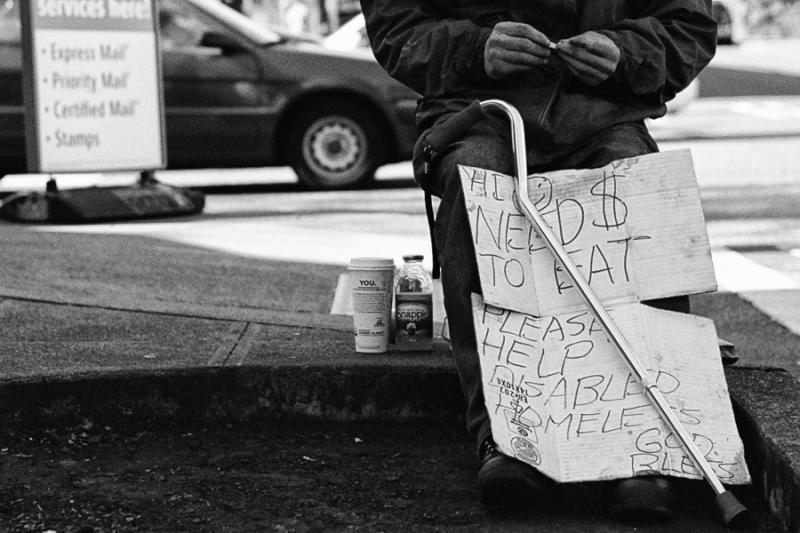 services here!
• Express Mail
• Priority Mail
• Certified Mail
• Stamps
YOU.
HI ☺ $
NEED
TO EAT
PLEASE
HELP
DISABLED
HOMELESS
GOD
BLESS